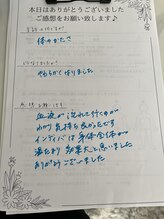 本日はありがとうございました
ご感想をお願い致します♪
体のかたさ
やわらかくなりました
血液が流れて行くのが
わかり気持ち良かったです
インディバは身体全体が
温たまり効果大と思いました
ありがとうございました